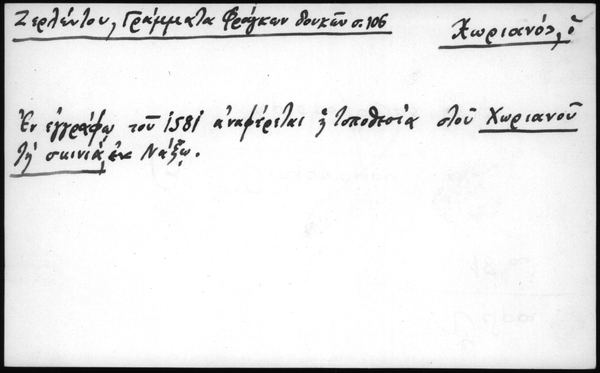 Ζερλέντου, Γράμματα Φράγκων δουκῶν σ. 106
Χωριανός, ὁ
Ἐν ἐγγράφῳ τοῦ 1581 ἀναφέρεται ἡ τοποθεσία στοῦ Χωριανοῦ
τὴ σκινιά, ἐν Νάξῳ.